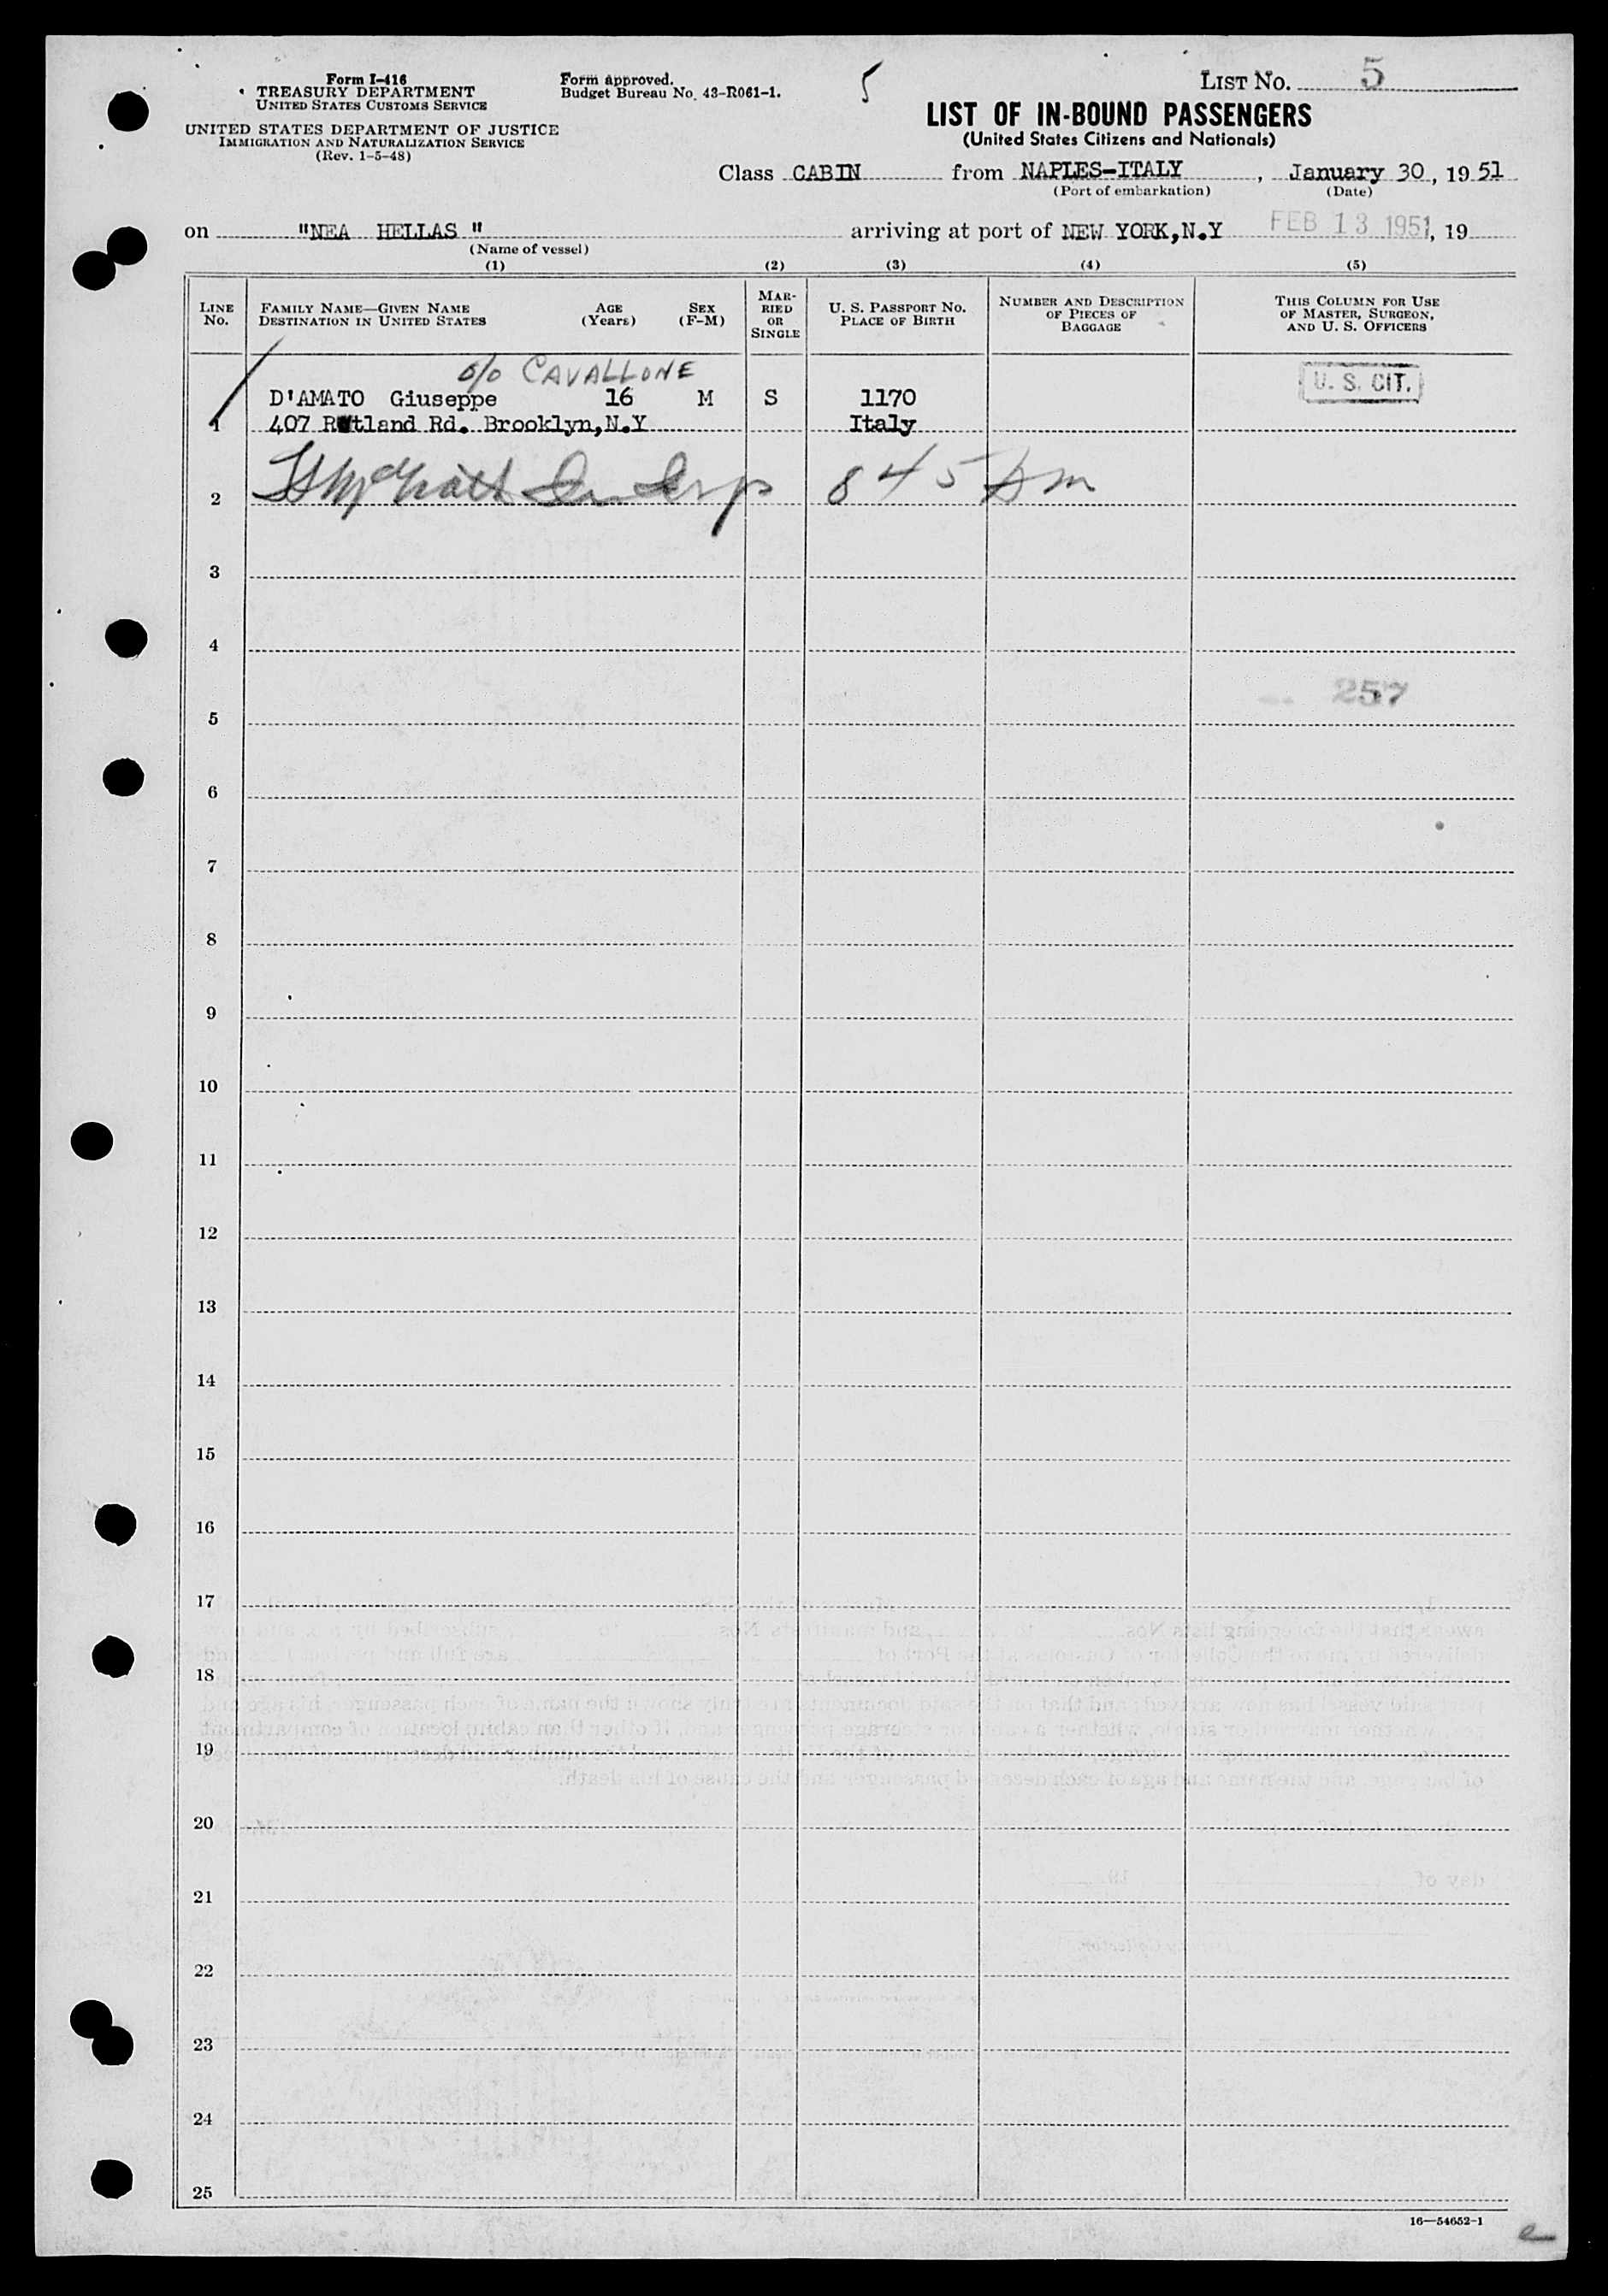 Form I-416
TREASURY DEPARTMENT
UNITED STATES CUSTOMS SERVICE
UNITED STATES DEPARTMENT OF JUSTICE
IMMIGRATION AND NATURALIZATION SERVICE
(Rev. 1-5-48)
Form approved.
Budget Bureau No. 43-R061-1.
5
LIST NO. 5
LIST OF IN-BOUND PASSENGERS
(United States Citizens and Nationals)
Class CABIN from NAPLES-ITALY, January 30, 19 51
(Port of embarkation) (Date)
on "NEA HELLAS " arriving at port of NEW YORK,N.Y FEB 13 1951, 19
(Name of vessel)
(1) (2) (3) (4) (5)
LINE No. FAMILY NAME—GIVEN NAME DESTINATION IN UNITED STATES AGE (Years) SEX (F-M) MARRIED OR SINGLE U. S. PASSPORT NO. PLACE OF BIRTH NUMBER AND DESCRIPTION OF PIECES OF BAGGAGE THIS COLUMN FOR USE OF MASTER, SURGEON, AND U. S. OFFICERS
CAVALLONE
D'AMATO Giuseppe 16 M S 1170 U. S. CIT.
1 407 Rutland Rd. Brooklyn,N.Y Italy
2 845 pm
3
4
257
5
6
7
8
9
10
11
12
13
14
15
16
17
18
19
20
21
22
23
24
25
16—54652-1